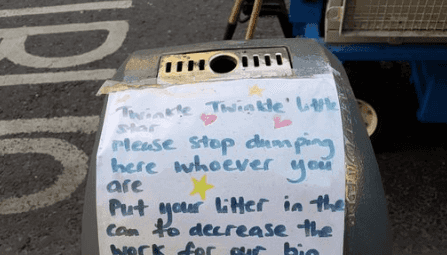 Twinkle Twinkle Little
star
Please stop dumping
here whoever you
are
Put your litter in the
can to decrease the
work for our bin